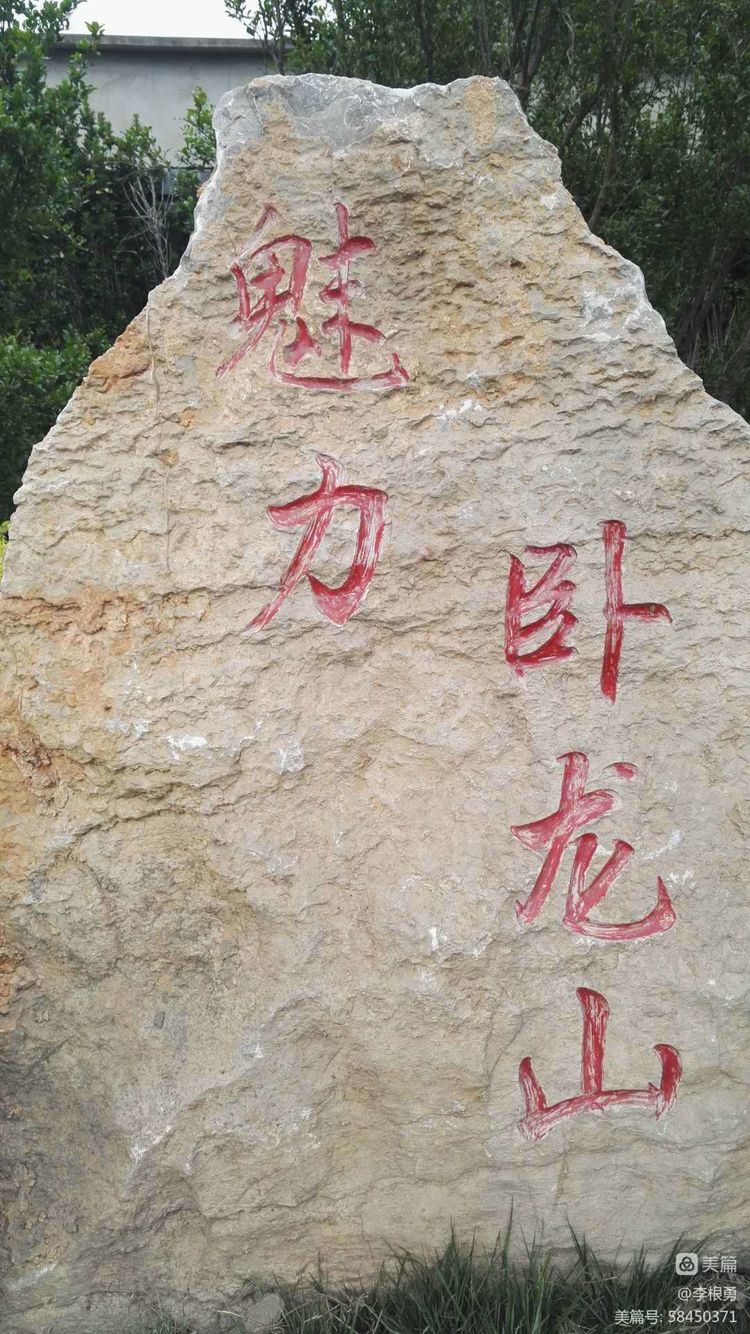 魅力
卧龙山
美篇
@李根勇
美篇号: 58450371